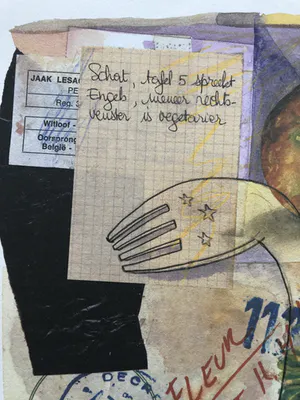 JAAK LESA
PE
Reg. 3
Witloof -
Oorsprong
België -
Schat, tafel 5 spreekt
Engels, meneer rechts-
venster is vegetariër
FLEUR
DEC